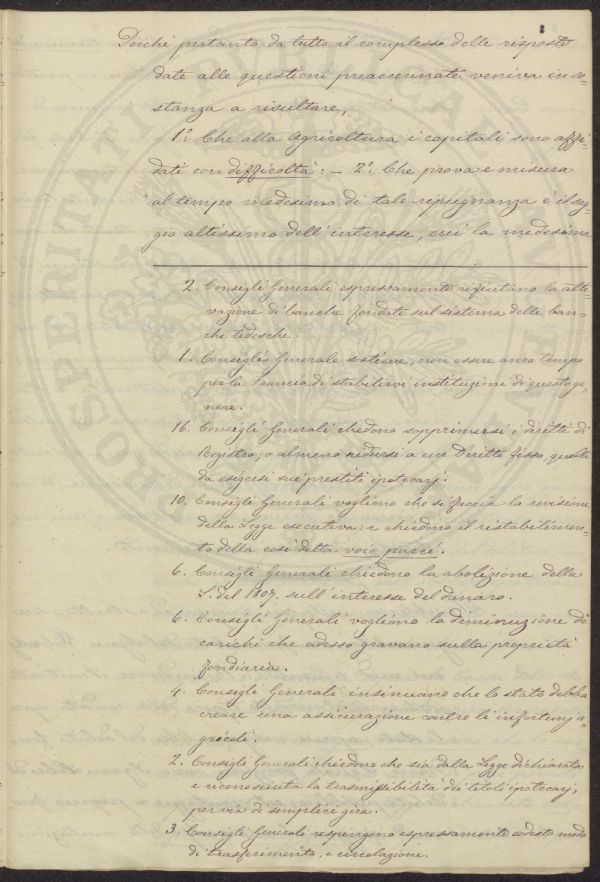 Poichè pertanto da tutto il complesso delle risposte
date alle questioni preaccennate veniva in so=
stanza a risultare,
1º: Che alla Agricoltura i capitali sono affi=
dati con difficoltà: — 2º: Che prova e misura
al tempo medesimo di tale repugnanza è il sag=
gio altissimo dell'interesse, cui la medesima
2. Consigli Generali espressamente rifiutano la atti=
vazione di banche fondate sul sistema delle ban=
che tedesche.
1. Consiglio Generale sostiene, non essere anco tempo
per la Francia di stabilirvi instituzioni di questo ge=
nere.
16. Consigli Generali chiedono sopprimersi i diritti di
Registro; o almeno ridursi a un Diritto fisso, quelli
da esigersi sui prestiti ipotecarj.
10. Consigli Generali vogliono che si faccia la revisione
della Legge esecutiva: e chiedono il ristabilimen=
to della così detta voie parée.
6. Consigli Generali chiedono la abolizione della
L. del 1807. sull'interesse del danaro.
6. Consigli Generali vogliono la diminuzione di
carichi che adesso gravano sulla proprietà
fondiaria.
4. Consigli Generali insinuano che lo stato debba
creare una assicurazione contro li infortunj a=
gricoli.
2. Consigli Generali chiedono che sia dalla Legge dichiarata
e riconosciuta la trasmissibilità dei titoli ipotecarj,
per via di semplici gira.
3. Consigli Generali respingono espressamente codesto modo
di trasferimento, e circolazione.
PROSPERITATI PVBLICAE